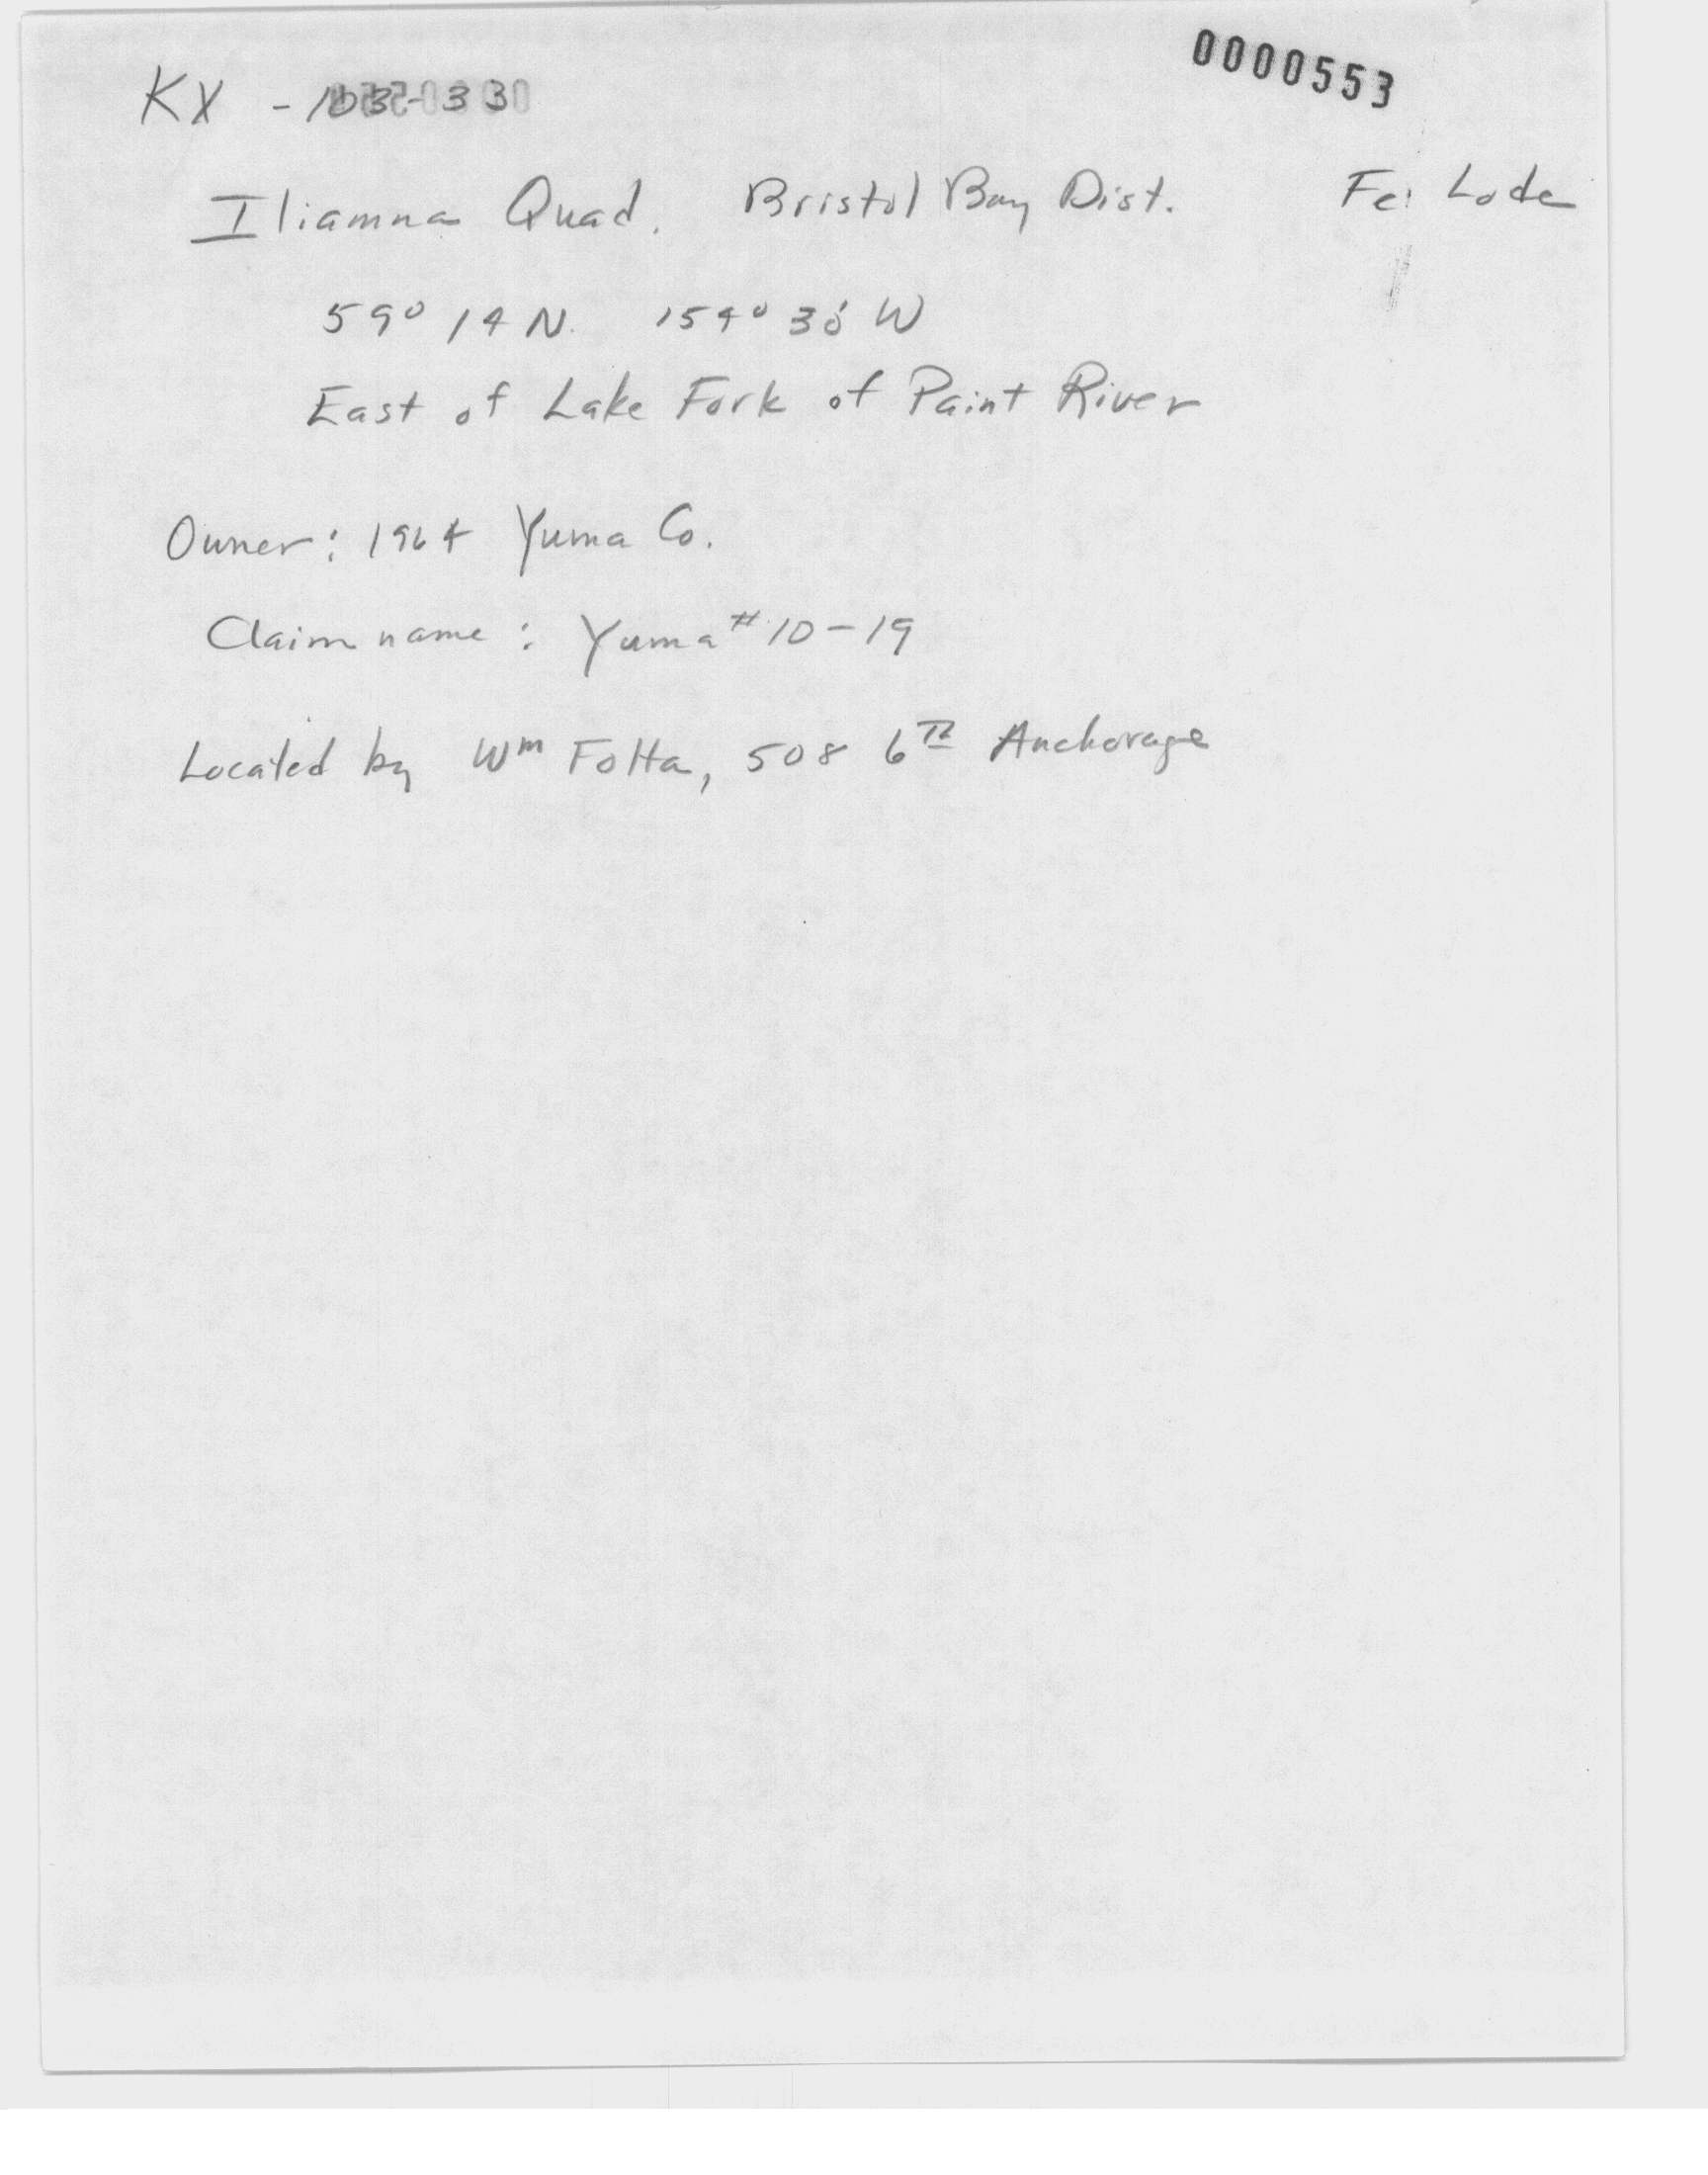 0000553
KX - 103-33
Iliamna Quad. Bristol Bay Dist. Fe: Lode
59° 14 N. 154° 30' W
East of Lake Fork of Paint River
Owner: 1964 Yuma Co.
Claim name: Yuma #10-19
Located by Wm Folta, 508 6th Anchorage